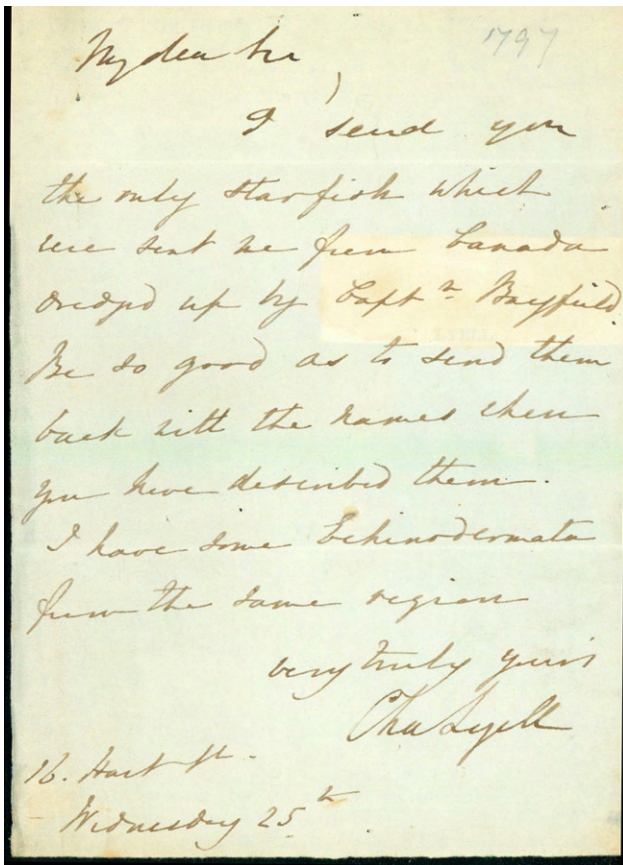 1797
My dear Sir,
I send you
the only starfish which
were sent me from Canada
dredgd up by Capt.n Bayfield
Be so good as to send them
back with the names when
you have described them.
I have some Echinodermata
from the same region
very truly yours
Cha Lyell
16. Hart St.
Wednesday 25th